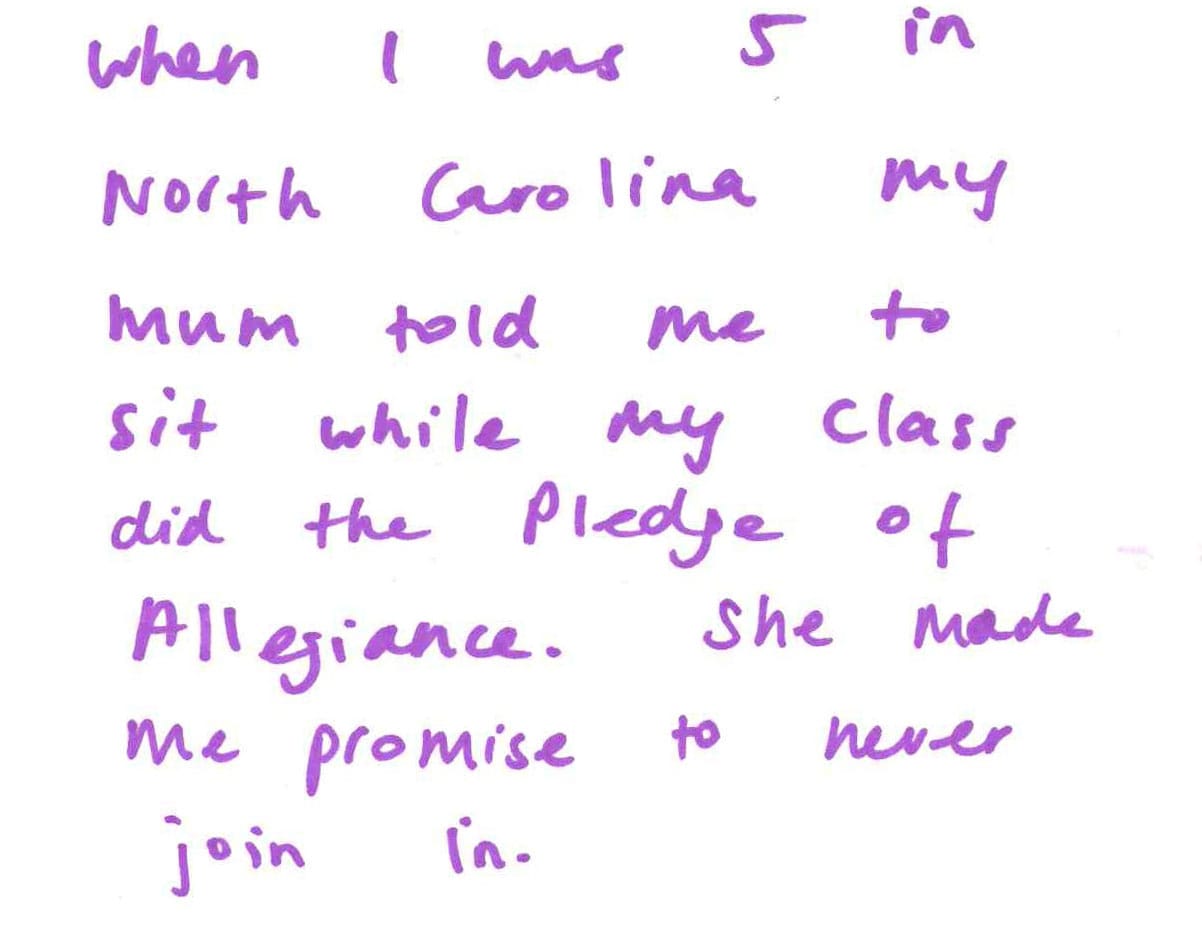 when I was 5 in
North Carolina my
mum told me to
sit while my class
did the Pledge of
Allegiance. She made
me promise to never
join in.